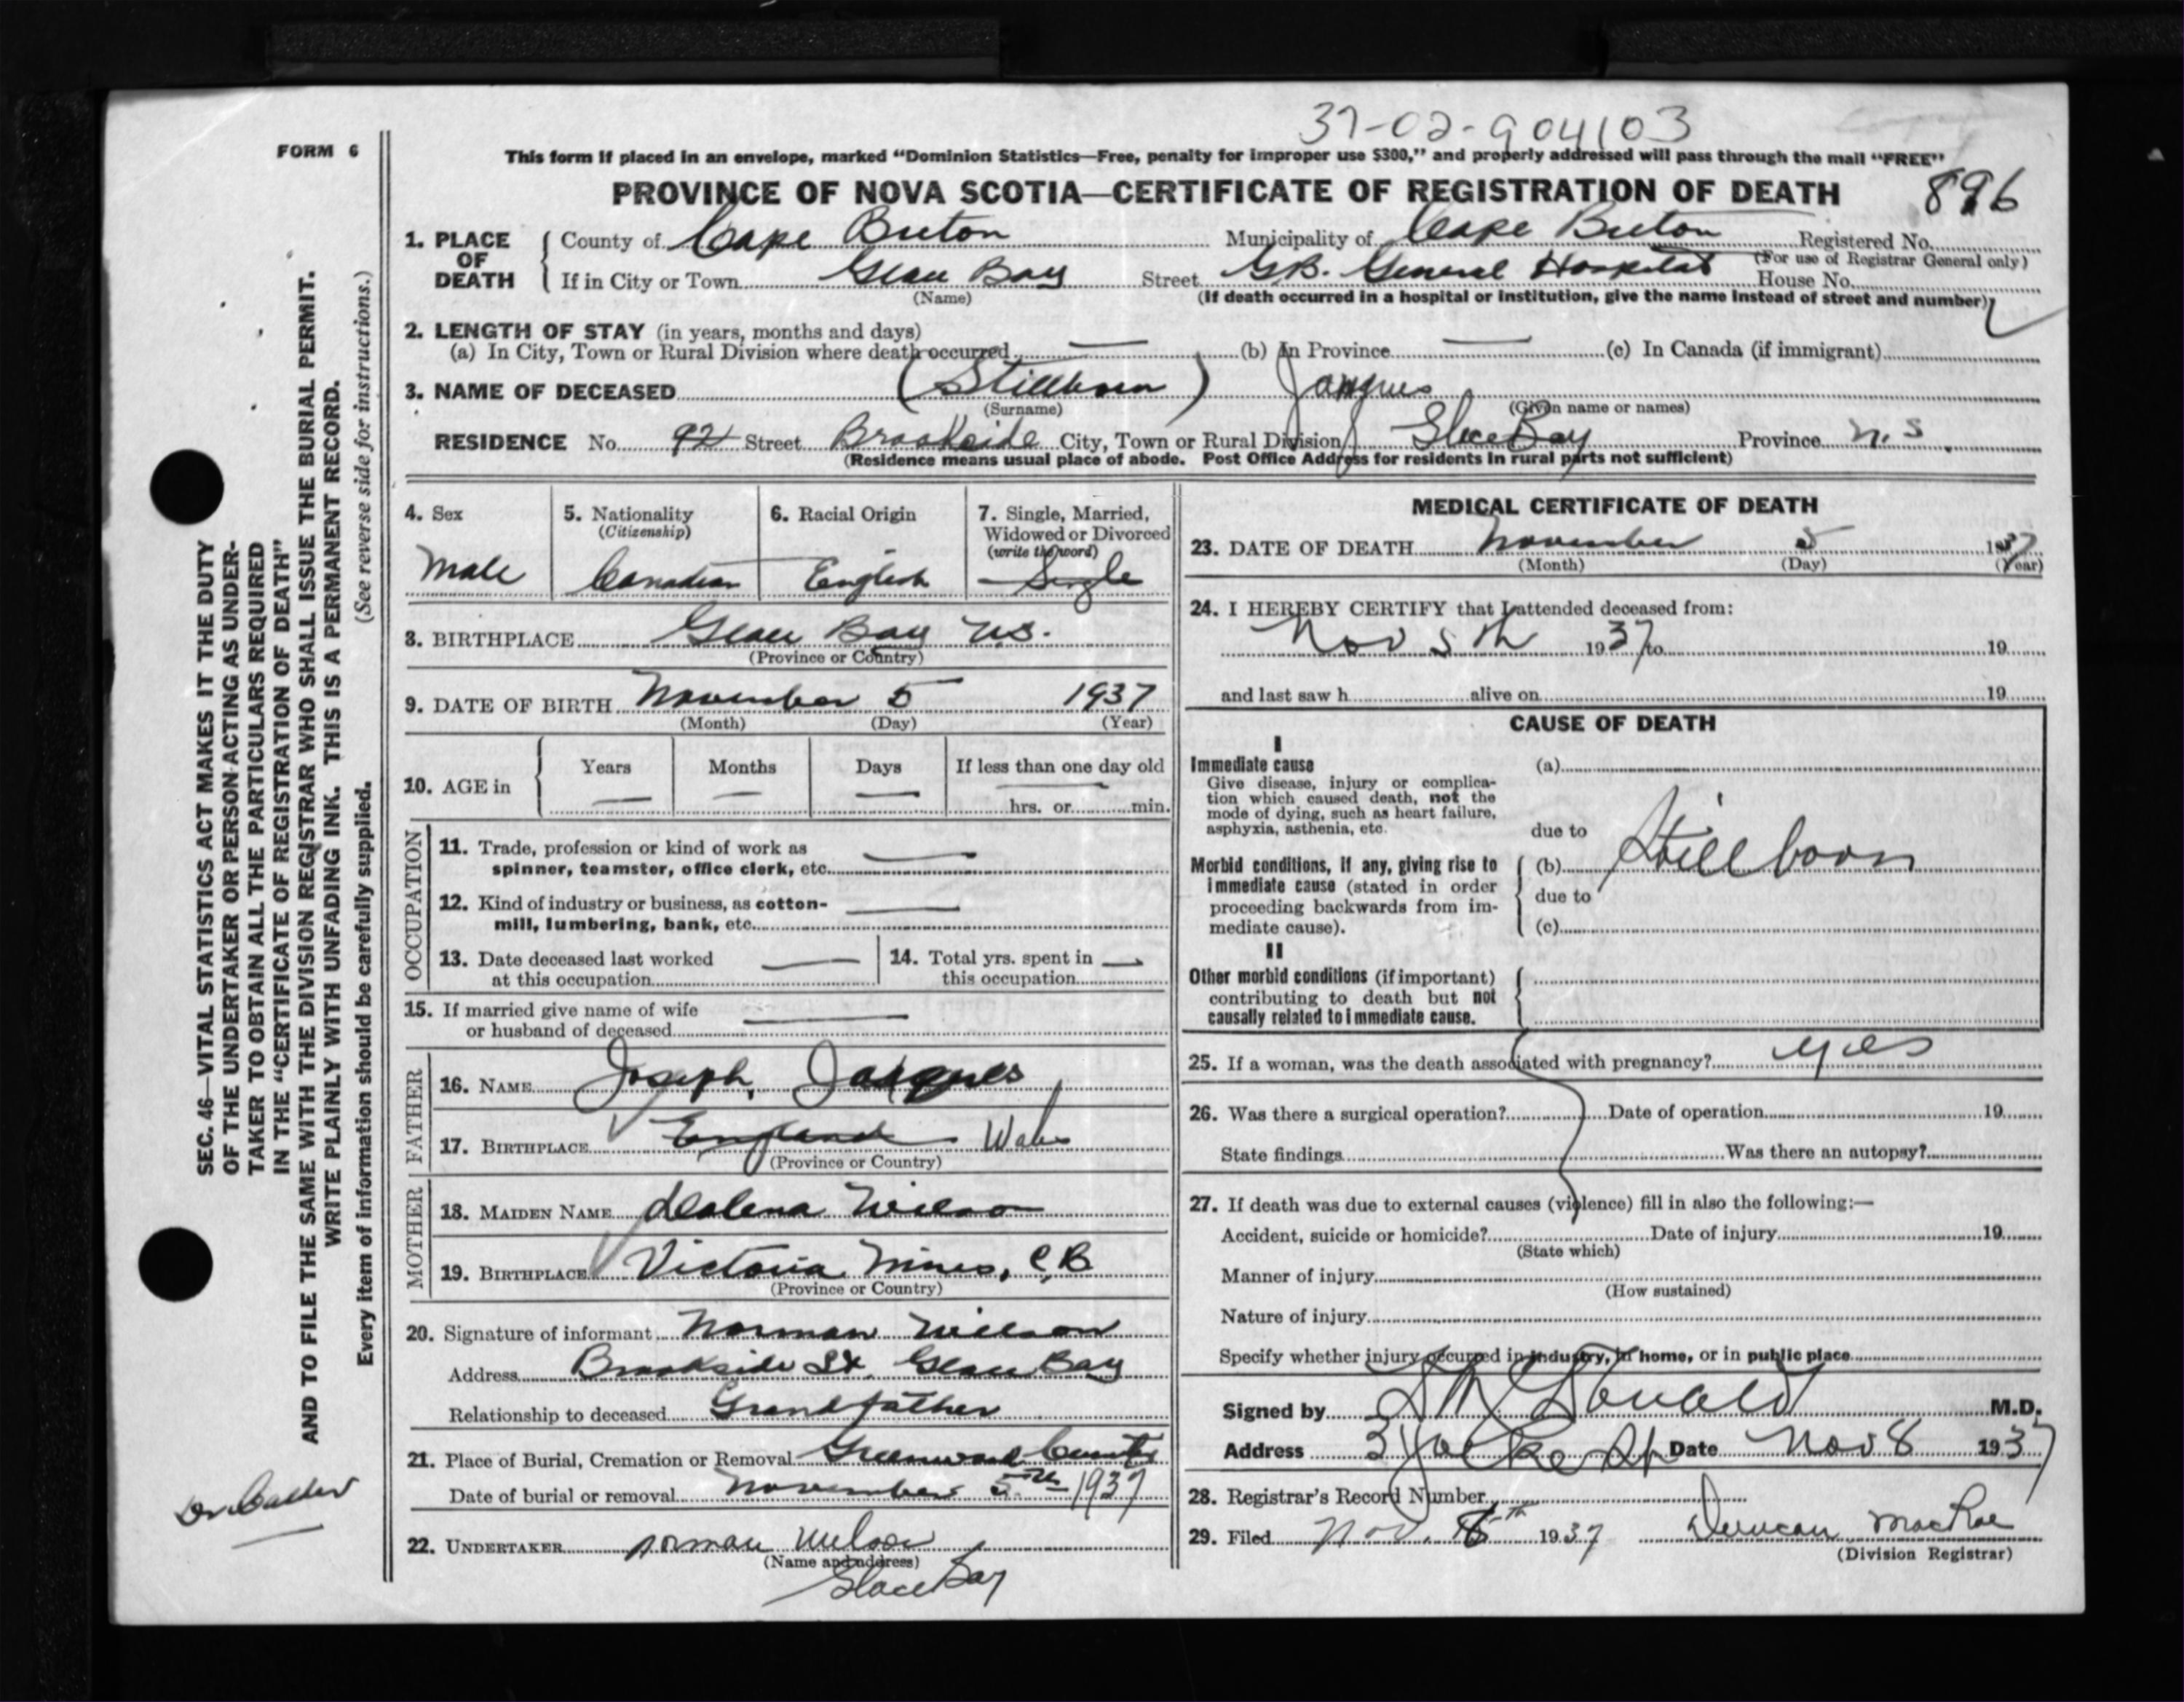 37-02-904103
FORM 6
This form if placed in an envelope, marked "Dominion Statistics—Free, penalty for improper use $300," and properly addressed will pass through the mail "FREE"
PROVINCE OF NOVA SCOTIA—CERTIFICATE OF REGISTRATION OF DEATH 896
1. PLACE OF DEATH County of Cape Breton Municipality of Cape Breton Registered No.
(For use of Registrar General only)
If in City or Town Glace Bay Street G.B. General Hospital House No.
(Name) (If death occurred in a hospital or institution, give the name instead of street and number)
2. LENGTH OF STAY (in years, months and days)
(a) In City, Town or Rural Division where death occurred — (b) In Province — (c) In Canada (if immigrant)
3. NAME OF DECEASED (Stillborn) Jaques
(Surname) (Given name or names)
RESIDENCE No. 92 Street Brookside City, Town or Rural Division Glace Bay Province N.S
(Residence means usual place of abode. Post Office Address for residents in rural parts not sufficient)
4. Sex 5. Nationality 6. Racial Origin 7. Single, Married,
(Citizenship) Widowed or Divorced
(write the word)
Male Canadian English Single
8. BIRTHPLACE Glace Bay N.S.
(Province or Country)
9. DATE OF BIRTH November 5 1937
(Month) (Day) (Year)
10. AGE in Years Months Days If less than one day old
— — — — hrs. or min.
OCCUPATION
11. Trade, profession or kind of work as
spinner, teamster, office clerk, etc. —
12. Kind of industry or business, as cotton-
mill, lumbering, bank, etc. —
13. Date deceased last worked — 14. Total yrs. spent in —
at this occupation this occupation
15. If married give name of wife
or husband of deceased —
FATHER
16. NAME Joseph Jaques
17. BIRTHPLACE England Wales
(Province or Country)
MOTHER
18. MAIDEN NAME Wilson
19. BIRTHPLACE Victoria Mines, C.B
(Province or Country)
20. Signature of informant Norman Wilson
Address Brookside St. Glace Bay
Relationship to deceased Grandfather
21. Place of Burial, Cremation or Removal Greenwood
Date of burial or removal November 5th 1937
22. UNDERTAKER Norman Wilson
(Name and address)
Glace Bay
MEDICAL CERTIFICATE OF DEATH
23. DATE OF DEATH November 5 1937
(Month) (Day) (Year)
24. I HEREBY CERTIFY that I attended deceased from:
Nov 5th 1937 to 19
and last saw h alive on 19
CAUSE OF DEATH
I
Immediate cause (a)
Give disease, injury or complica-
tion which caused death, not the
mode of dying, such as heart failure,
asphyxia, asthenia, etc. due to
Morbid conditions, if any, giving rise to (b) Stillborn
immediate cause (stated in order
proceeding backwards from im- due to
mediate cause). (c)
II
Other morbid conditions (if important)
contributing to death but not
causally related to immediate cause.
25. If a woman, was the death associated with pregnancy? yes
26. Was there a surgical operation? Date of operation 19
State findings Was there an autopsy?
27. If death was due to external causes (violence) fill in also the following:—
Accident, suicide or homicide? Date of injury 19
(State which)
Manner of injury
(How sustained)
Nature of injury
Specify whether injury occurred in industry, in home, or in public place
Signed by M.D.
Address Date Nov 8 1937
28. Registrar's Record Number
29. Filed Nov. 8th 1937 Duncan MacRae
(Division Registrar)
SEC. 46—VITAL STATISTICS ACT MAKES IT THE DUTY
OF THE UNDERTAKER OR PERSON ACTING AS UNDER-
TAKER TO OBTAIN ALL THE PARTICULARS REQUIRED
IN THE "CERTIFICATE OF REGISTRATION OF DEATH"
AND TO FILE THE SAME WITH THE DIVISION REGISTRAR WHO SHALL ISSUE THE BURIAL PERMIT.
WRITE PLAINLY WITH UNFADING INK. THIS IS A PERMANENT RECORD.
Every item of information should be carefully supplied. (See reverse side for instructions.)